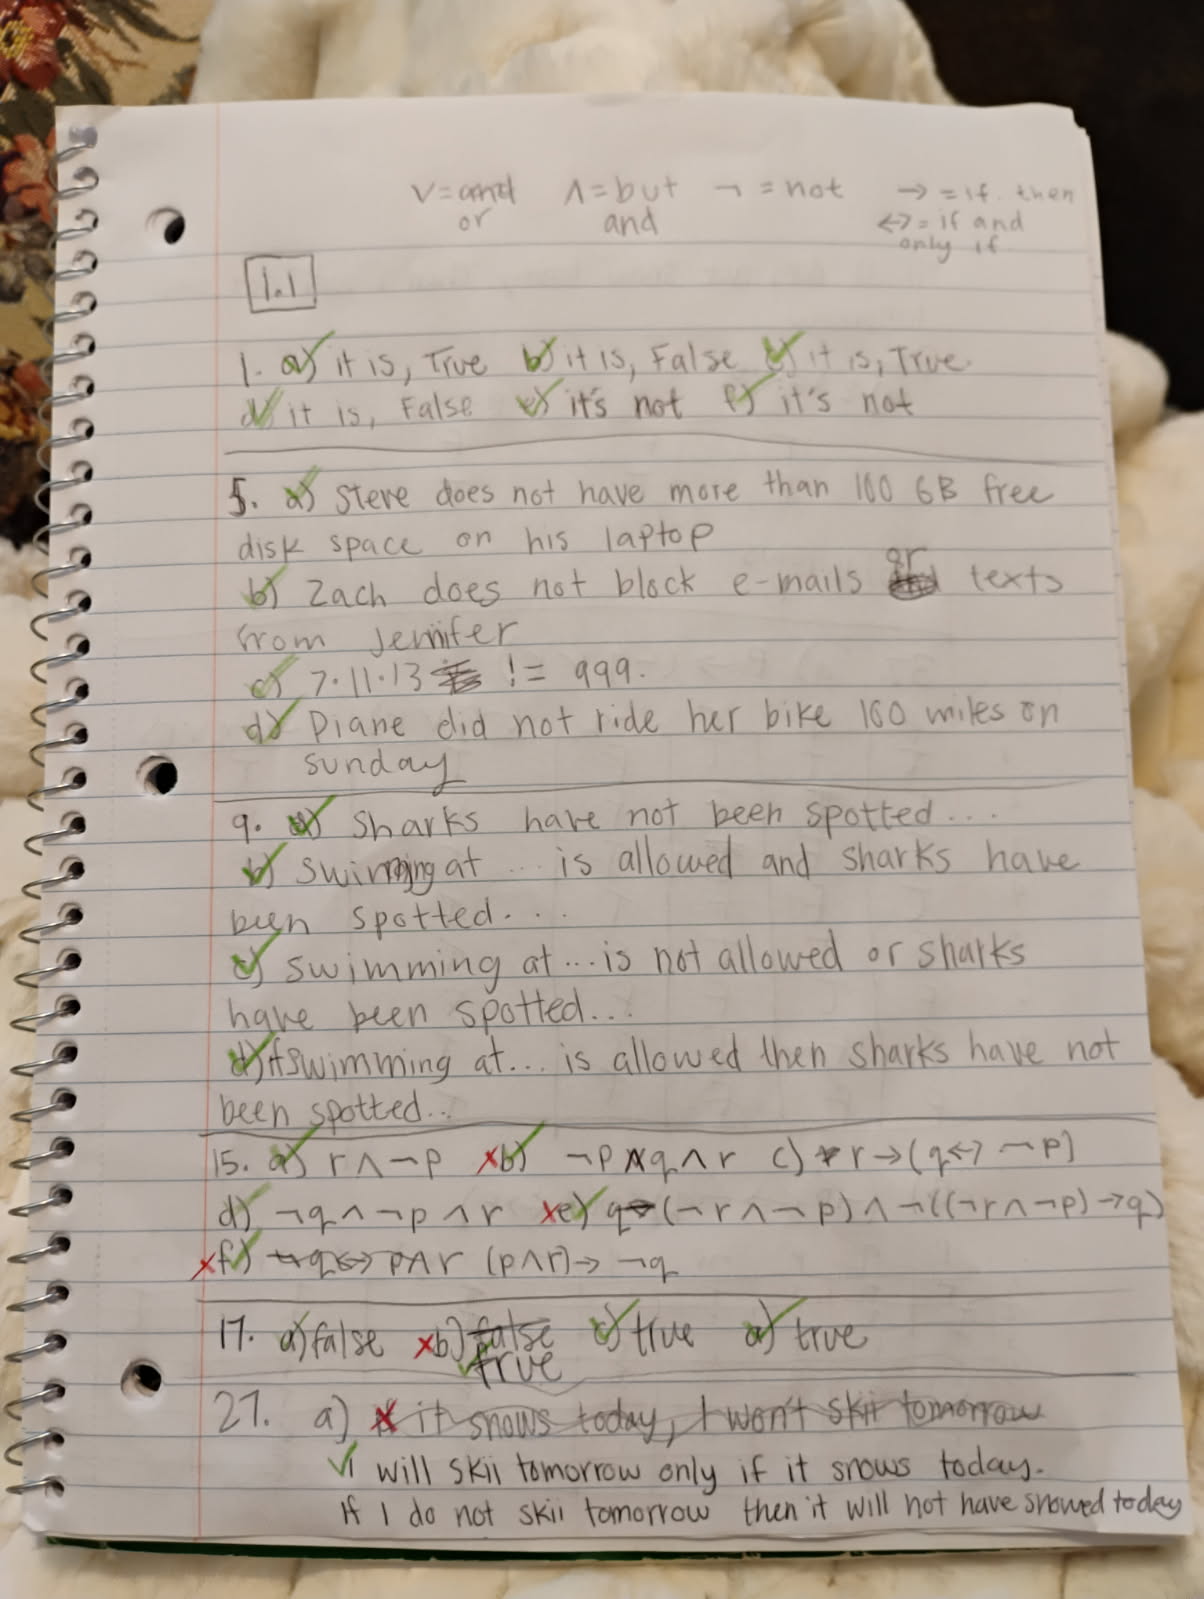 V=and Λ=but ¬=not → = if. then
or and ↔ = if and
only if
1.1
1. a) it is, True b) it is, False c) it is, True
d) it is, False e) it's not f) it's not
5. a) Steve does not have more than 100 GB free
disk space on his laptop
b) Zach does not block e-mails or texts
from Jennifer
c) 7·11·13 != 999.
d) Diane did not ride her bike 100 miles on
sunday
9. a) Sharks have not been spotted...
b) swimming at ... is allowed and sharks have
been spotted...
c) swimming at ... is not allowed or sharks
have been spotted...
d) if swimming at... is allowed then sharks have not
been spotted...
15. a) r ∧ ¬p x b) ¬p ∧ q ∧ r c) r → (q ↔ ¬p)
d) ¬q ∧ ¬p ∧ r x e) q → (¬r ∧ ¬p) ∧ ¬((¬r ∧ ¬p) → q)
x f) ¬q ↔ p ∧ r (p ∧ r) → ¬q
17. a) false x b) false c) true d) true
true
27. a) x it snows today, I won't skii tomorrow
I will skii tomorrow only if it snows today.
If I do not skii tomorrow then it will not have snowed today